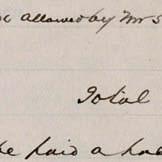 allowed by Mr S
Total
be paid a